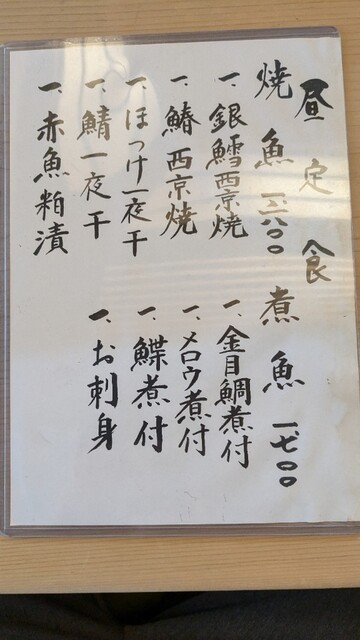 昼定食
焼魚
一、銀鱈西京焼
一、鰆西京焼
一、ほっけ一夜干
一、鯖一夜干
一、赤魚粕漬
煮魚 一七〇〇
一、金目鯛煮付
一、メロウ煮付
一、鰈煮付
一、お刺身